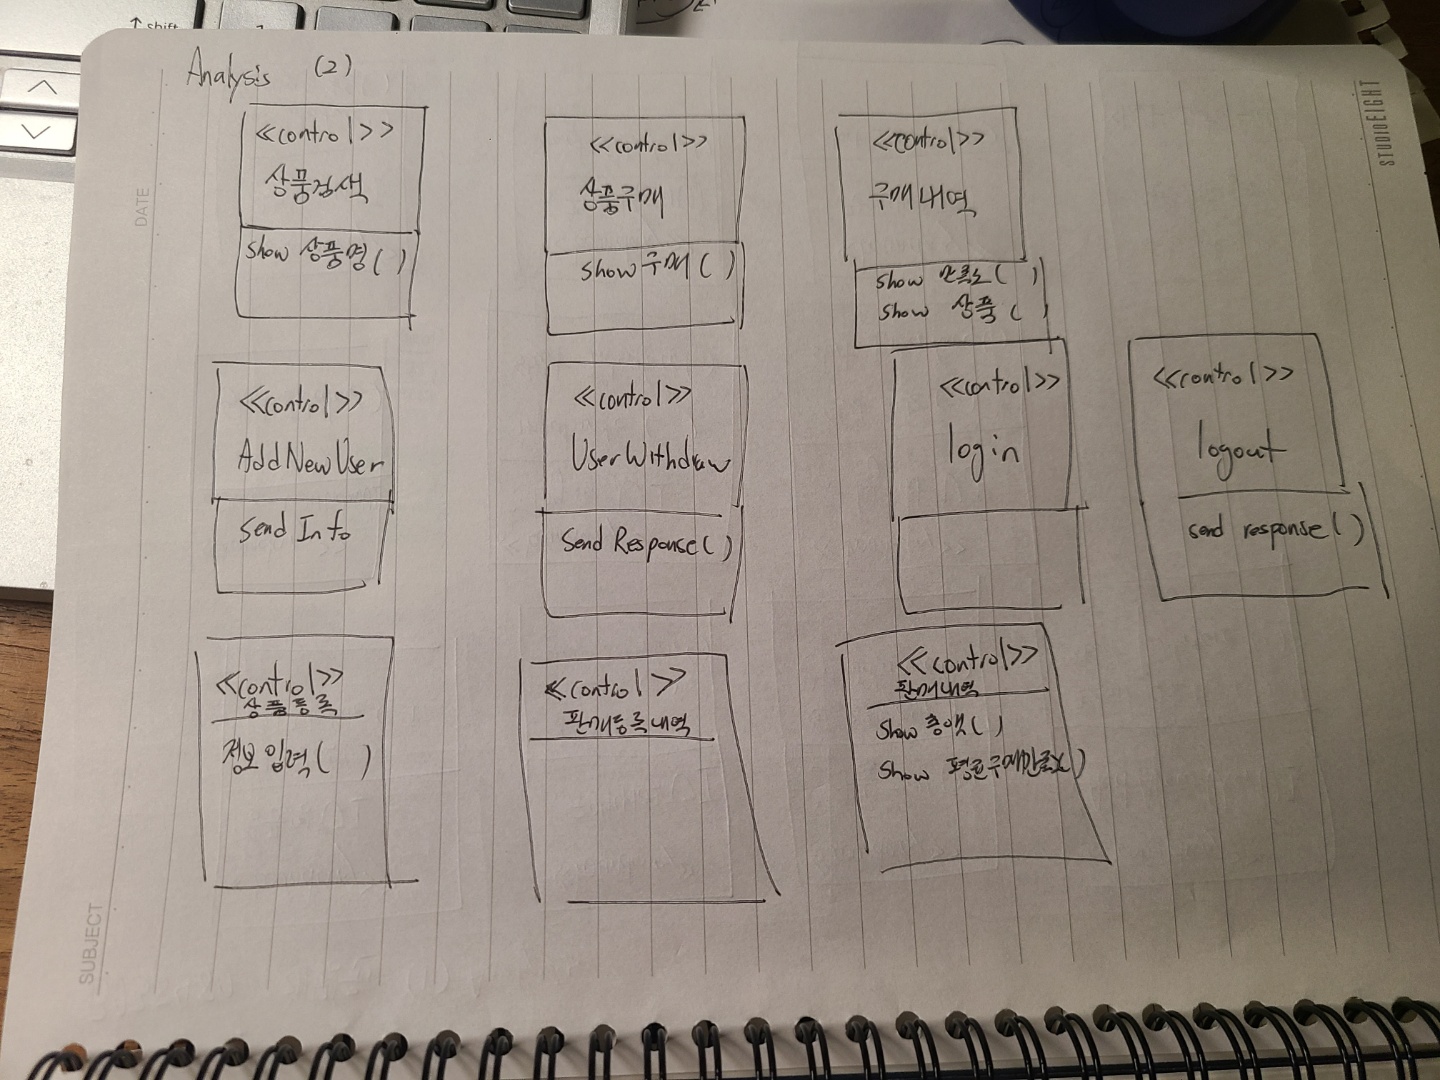 ↑ shift
Analysis (2)
STUDIO EIGHT
DATE
<<control>>
상품검색
show 상품명( )
<<control>>
상품구매
show 구매( )
<<control>>
구매내역
show 만족도( )
show 상품( )
<<control>>
AddNewUser
send Info
<<control>>
UserWithdraw
Send Response( )
<<control>>
login
<<control>>
logout
send response( )
<<control>>
상품등록
정보입력( )
<<control>>
판매등록내역
<<control>>
판매내역
show 총액( )
show 평균구매만족도( )
SUBJECT